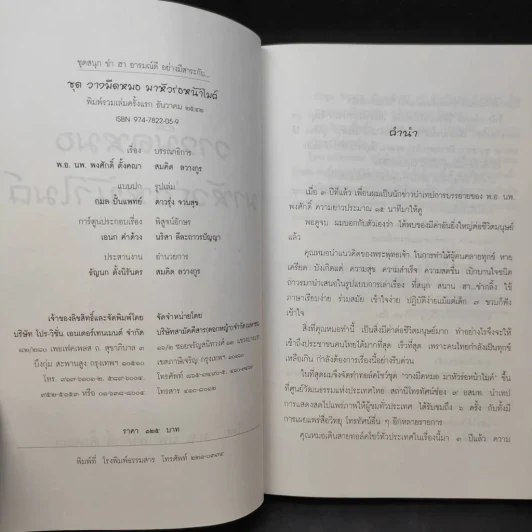 ชุดสนุก ขำ ฮา อารมณ์ดี อย่างมีสาระกับ...
ชุด วาวมีดหมอ มาหัวร่อหน้าไมล์
พิมพ์รวมเล่มครั้งแรก ธันวาคม ๒๕๔๒
ISBN 974-7822-05-9
เรื่อง บรรณาธิการ
พ.อ. นพ. พงศักดิ์ ตั้งคณา สมคิด ลวางกูร
แบบปก รูปเล่ม
กมล ปิ่นแพทย์ ดาวรุ่ง จวนสุข
การ์ตูนประกอบเรื่อง พิสูจน์อักษร
เอนก คำด้วง นริสา ลีละถาวรปัญญา
ประสานงาน อำนวยการ
ธัญนก ตั้งนิรันดร สมคิด ลวางกูร
เจ้าของลิขสิทธิ์และจัดพิมพ์โดย จัดจำหน่ายโดย
บริษัท โปร-วิชั่น เอนเตอร์เทนเมนต์ จำกัด บริษัทสามัคคีสาร(ดอกหญ้า)จำกัด
เพอเฟคเพลส ถ. สุขาภิบาล ๓
บึงกุ่ม สะพานสูง กรุงเทพฯ ๑๐๒๔๐ เขตภาษีเจริญ กรุงเทพฯ
โทรสาร
ราคา ๑๒๕ บาท
พิมพ์ที่ โรงพิมพ์ธรรมสาร โทรศัพท์
ลำนำ
เมื่อ ๓ ปีที่แล้ว เพื่อนผมเป็นนักข่าวนำเทปการบรรยายของ พ.อ. นพ.
พงศักดิ์ ความยาวประมาณ ๑๕ นาทีมาให้ดู
พอดูจบ ผมบอกกับตัวเองว่า ได้พบของมีค่าอันยิ่งใหญ่ต่อชีวิตมนุษย์
แล้ว
คุณหมอนำแนวคิดของพระพุทธเจ้า ในการทำให้ผู้คนคลายทุกข์ หาย
เครียด บังเกิดแต่ ความสุข ความสำเร็จ ความสดชื่น เบิกบานใจชนิด
ถาวรมานำเสนอในรูปแบบการเล่าเรื่อง ที่สนุก สนาน ฮา...ขำกลิ้ง ใช้
ภาษาเรียบง่าย ร่วมสมัย เข้าใจง่าย ปฏิบัติง่ายแม้แต่เด็ก ๓ ขวบก็ฟัง
เข้าใจ
สิ่งที่คุณหมอทำนี้ เป็นสิ่งมีค่าต่อชีวิตมนุษย์มาก ทำอย่างไรจึงจะให้
เข้าถึงประชาชนคนไทยได้มากที่สุด เร็วที่สุด เพราะคนไทยกำลังเป็นทุกข์
เหลือเกิน กำลังต้องการเรื่องนี้อย่างรีบด่วน
ในที่สุดผมจึงจัดทำทอล์คโชว์ชุด "วางมีดหมอ มาหัวร่อหน้าไมค์" ขึ้น
ที่ศูนย์วัฒนธรรมแห่งประเทศไทย สถานีโทรทัศน์ช่อง ๙ อสมท. นำเทป
การแสดงสดไปแพร่ภาพให้ผู้ชมทั่วประเทศ ได้รับชมถึง ๖ ครั้ง กับทั้งมี
การเผยแพร่สื่อวิทยุ โทรทัศน์อื่น ๆ อีกหลายรายการ
คุณหมอเดินสายทอล์คโชว์ทั่วประเทศในเรื่องนี้มา ๓ ปีแล้ว ความ